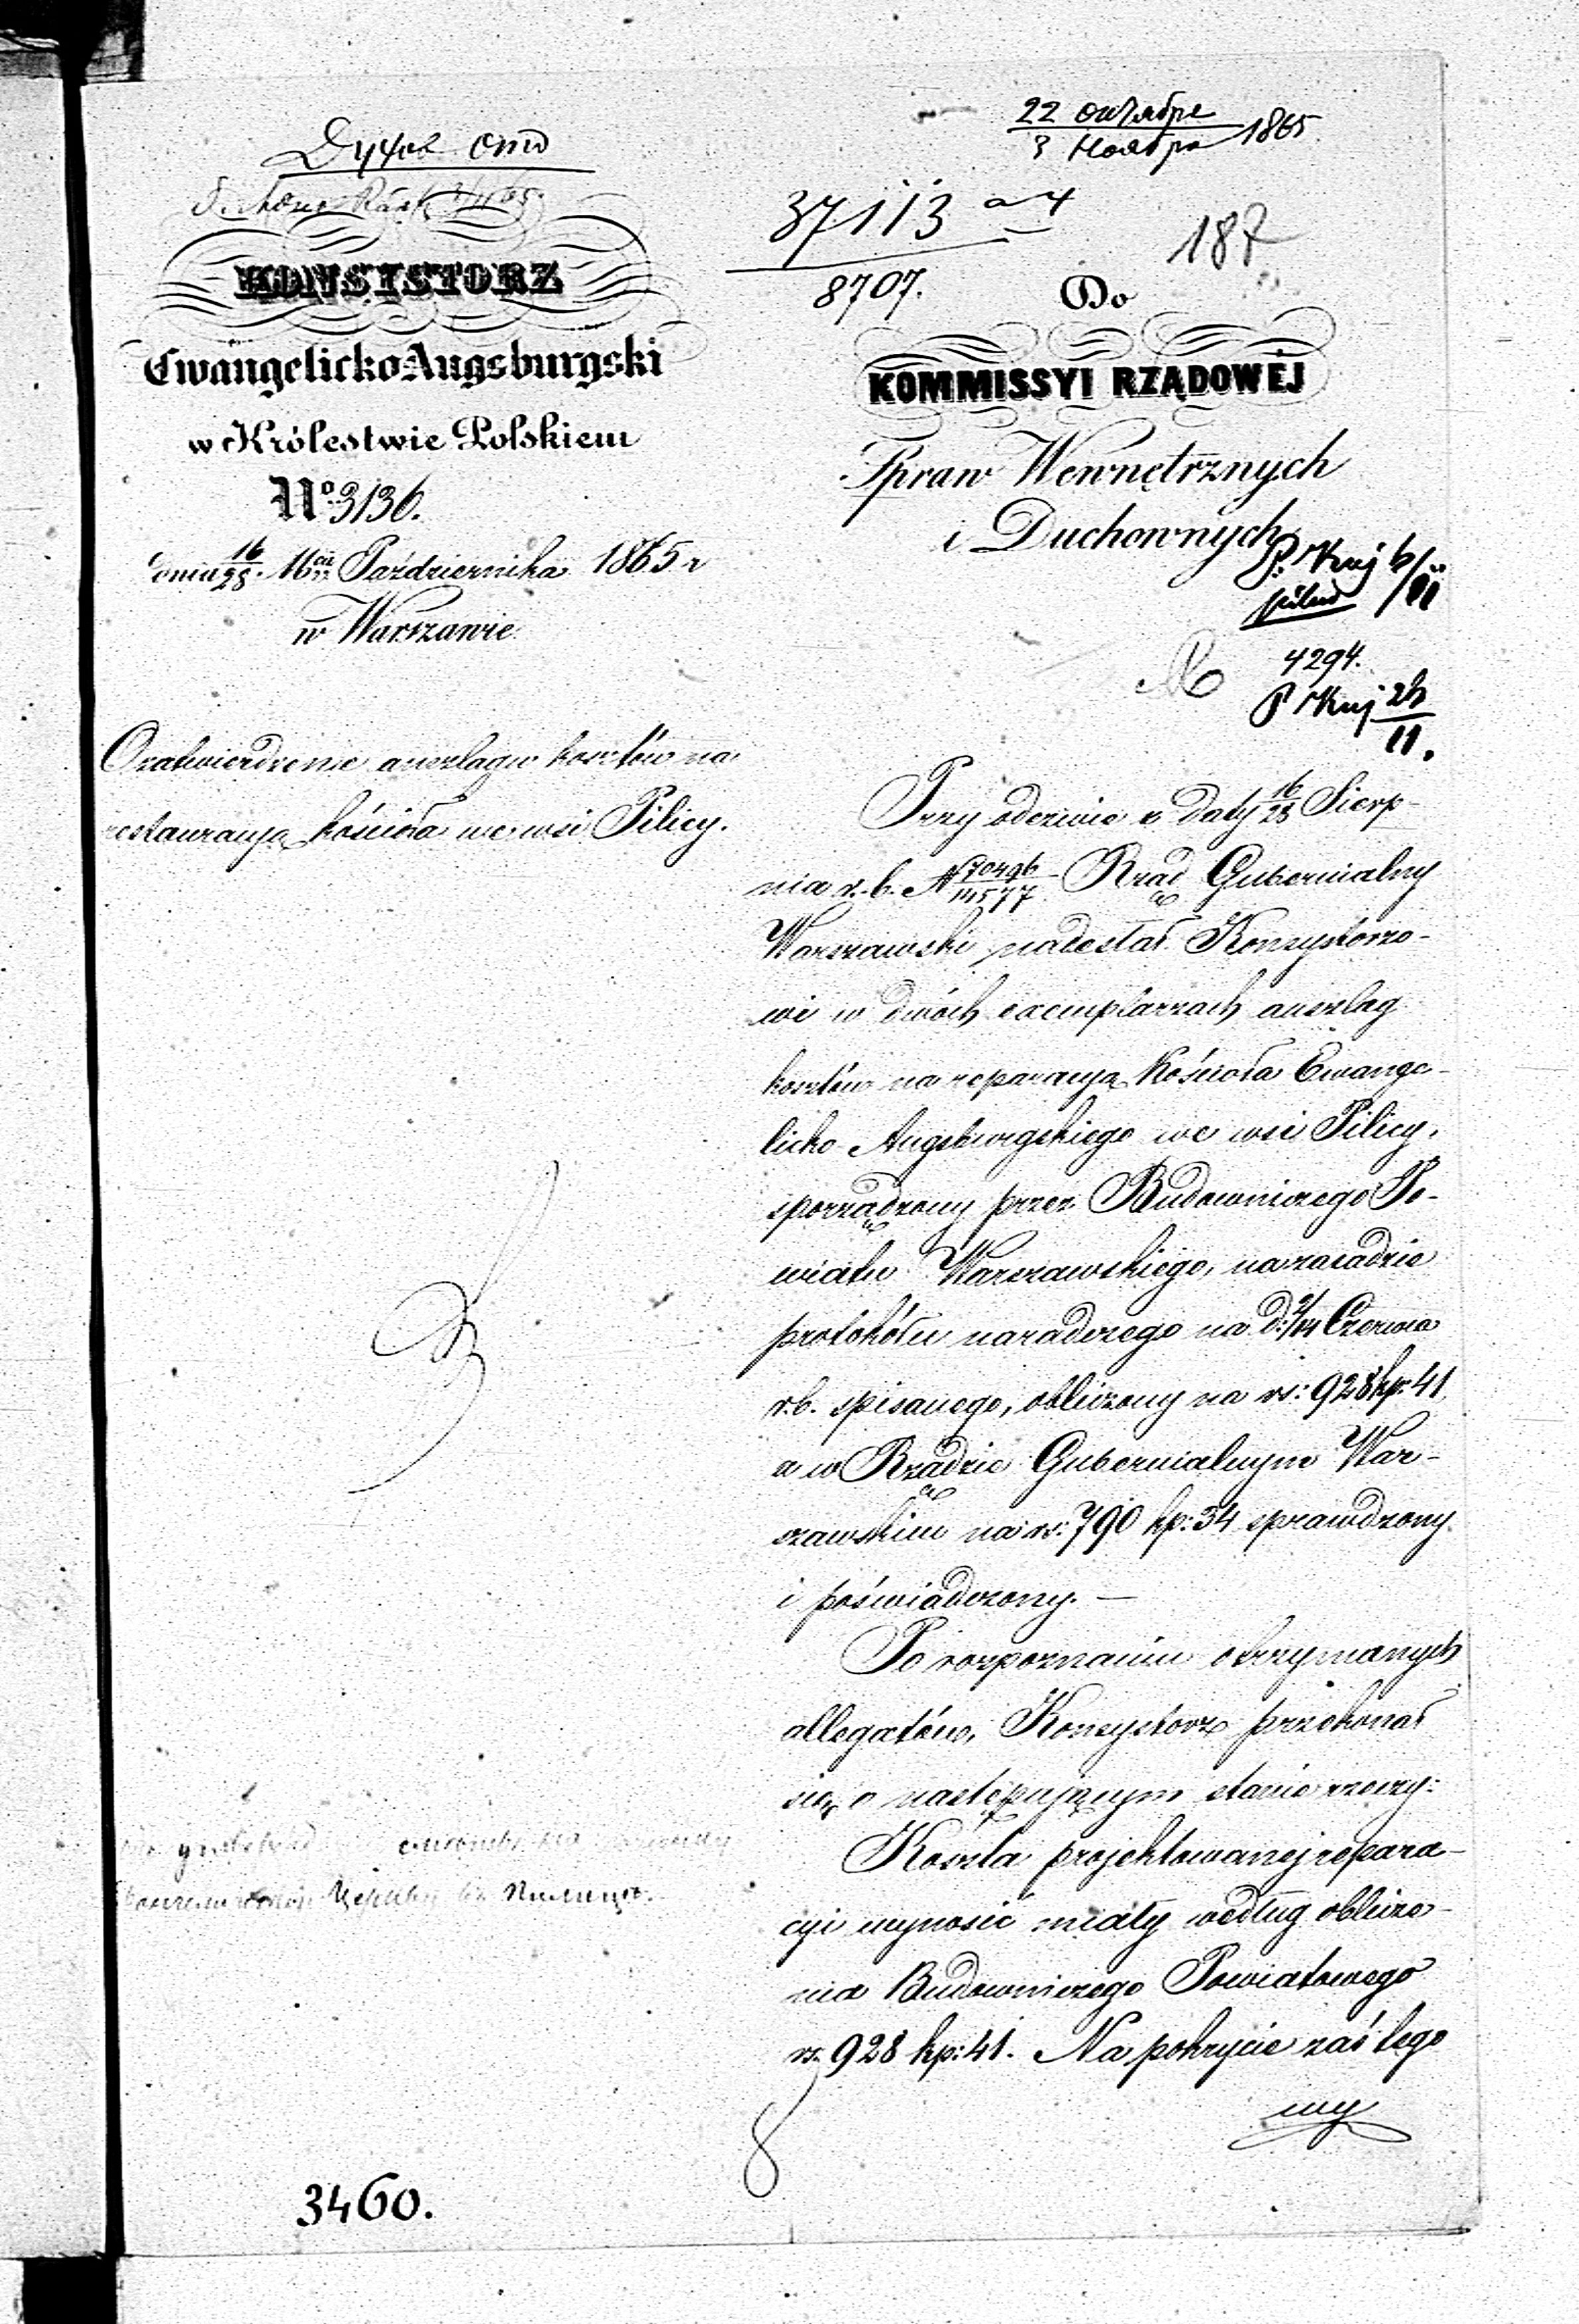 22 Октября
3 Ноября 1865
37113
8707.
187
KONSYSTORZ
Ewangelicko Augsburgski
w Królestwie Polskiem
No 3136.
dnia 16/28 Października 1865 r
w Warszawie
O zatwierdzenie anszlagu kosztów na
restauracyą kościoła we wsi Pilicy.
Do
KOMMISSYI RZĄDOWÉJ
Spraw Wewnętrznych
i Duchownych
4294.
Przy odezwie z daty 16/28 Sierp-
nia r. b. N 70496/14577 Rząd Gubernialny
Warszawski nadesłał Konsystorzo-
wi w dwóch exemplarzach anszlag
kosztów na reparacyą Kościoła Ewange-
licko Augsburgskiego we wsi Pilicy,
sporządzony przez Budowniczego Po-
wiatu Warszawskiego, na zasadzie
protokółu naradczego na d: 2/14 Czerwca
r.b. spisanego, obliczony na rs: 928 kp: 41
a w Rządzie Gubernialnym War-
szawskim na rs: 790 kp: 34 sprawdzony
i poświadczony. —
Po rozpoznaniu otrzymanych
allegatów, Konsystorz przekonał
się o następującym stanie rzeczy:
Koszta projektowanej repara-
cyi wynosić miały według oblicze-
nia Budowniczego Powiatowego
rs. 928 kp: 41. Na pokrycie zaś tego
wy
3460.